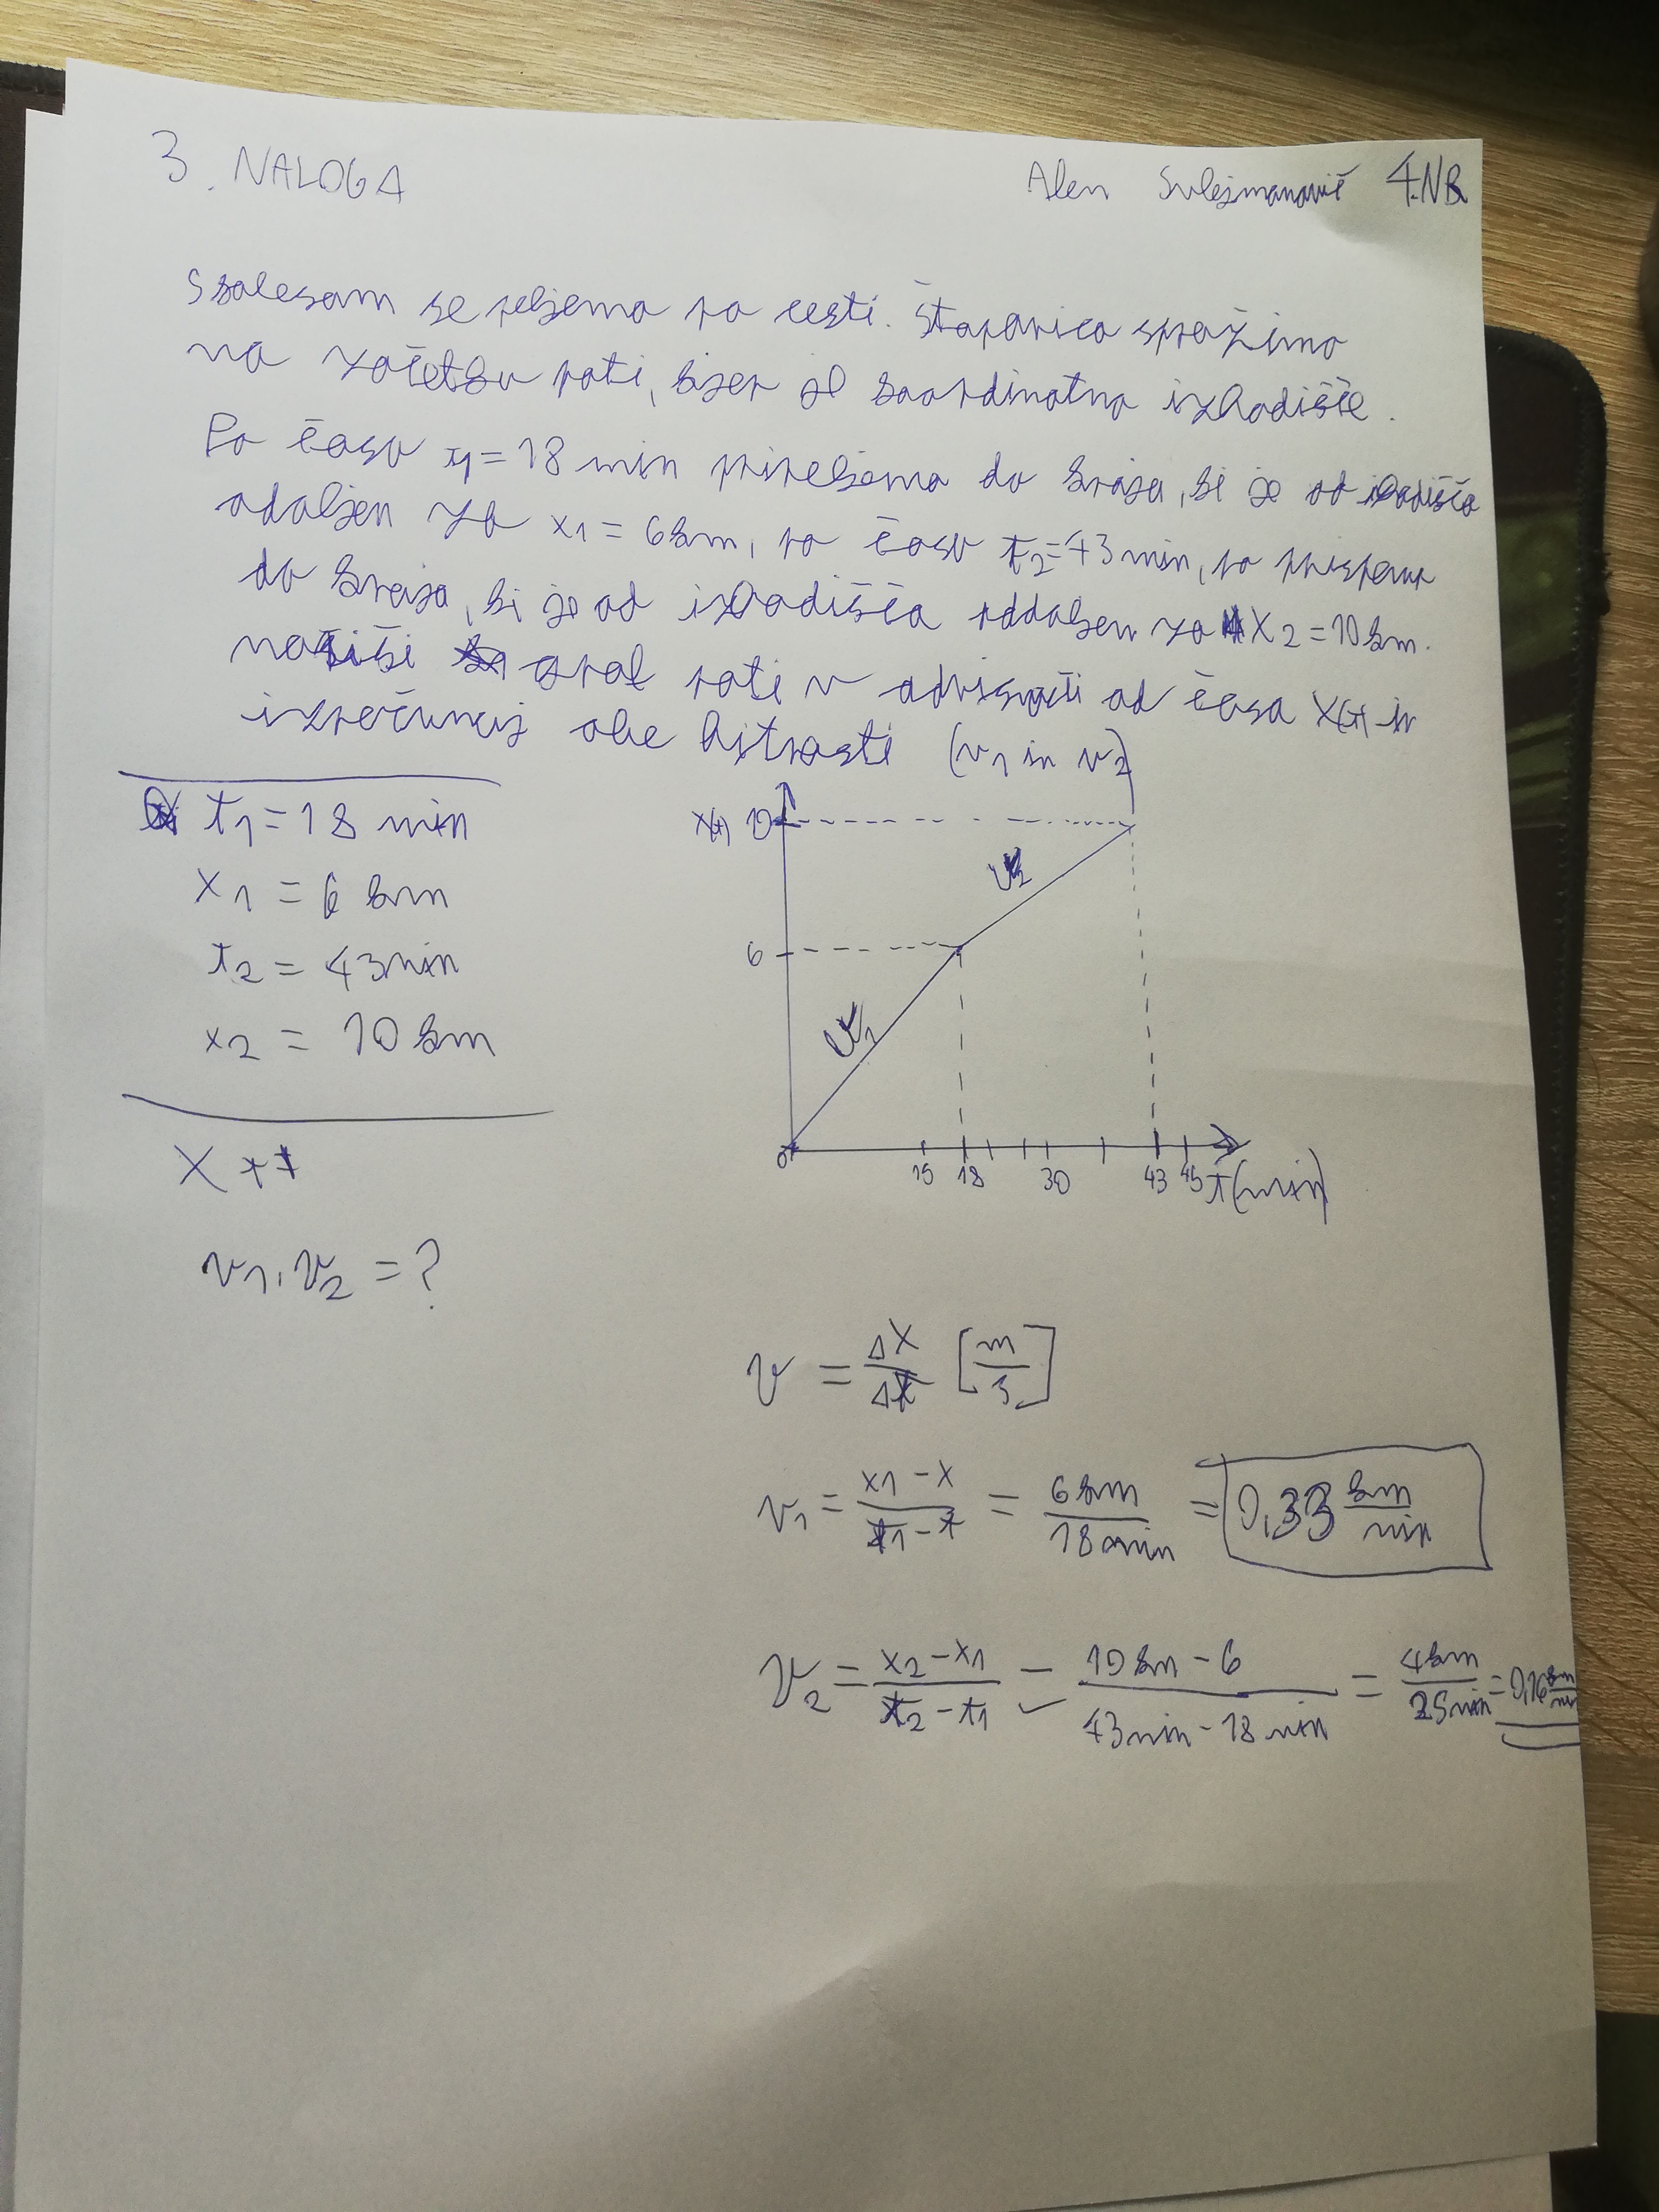 3. NALOGA
Alen Sulejmanović 4.NB
S kolesom se peljemo po cesti. Štoparico sprožimo
na začetku poti, kjer je koordinatno izhodišče.
Po času t1 = 18 min pripeljemo do kraja, ki je od izhodišča
oddaljen za x1 = 6 km, po času t2 = 43 min, pa prispemo
do kraja, ki je od izhodišča oddaljen za x2 = 10 km.
nariši graf poti v odvisnosti od časa x(t) in
izračunaj obe hitrosti (v1 in v2)
t1 = 18 min
x1 = 6 km
t2 = 43 min
x2 = 10 km
v1, v2 = ?
x(t) 10
v2
6
v1
0 15 18 30 43 45 t(min)
v = Δx/Δt [m/s]
v1 = (x1 - x)/(t1 - t) = 6 km/18 min = 0,33 km/min
v2 = (x2 - x1)/(t2 - t1) = (10 km - 6)/(43 min - 18 min) = 4 km/25 min = 0,16 km/min